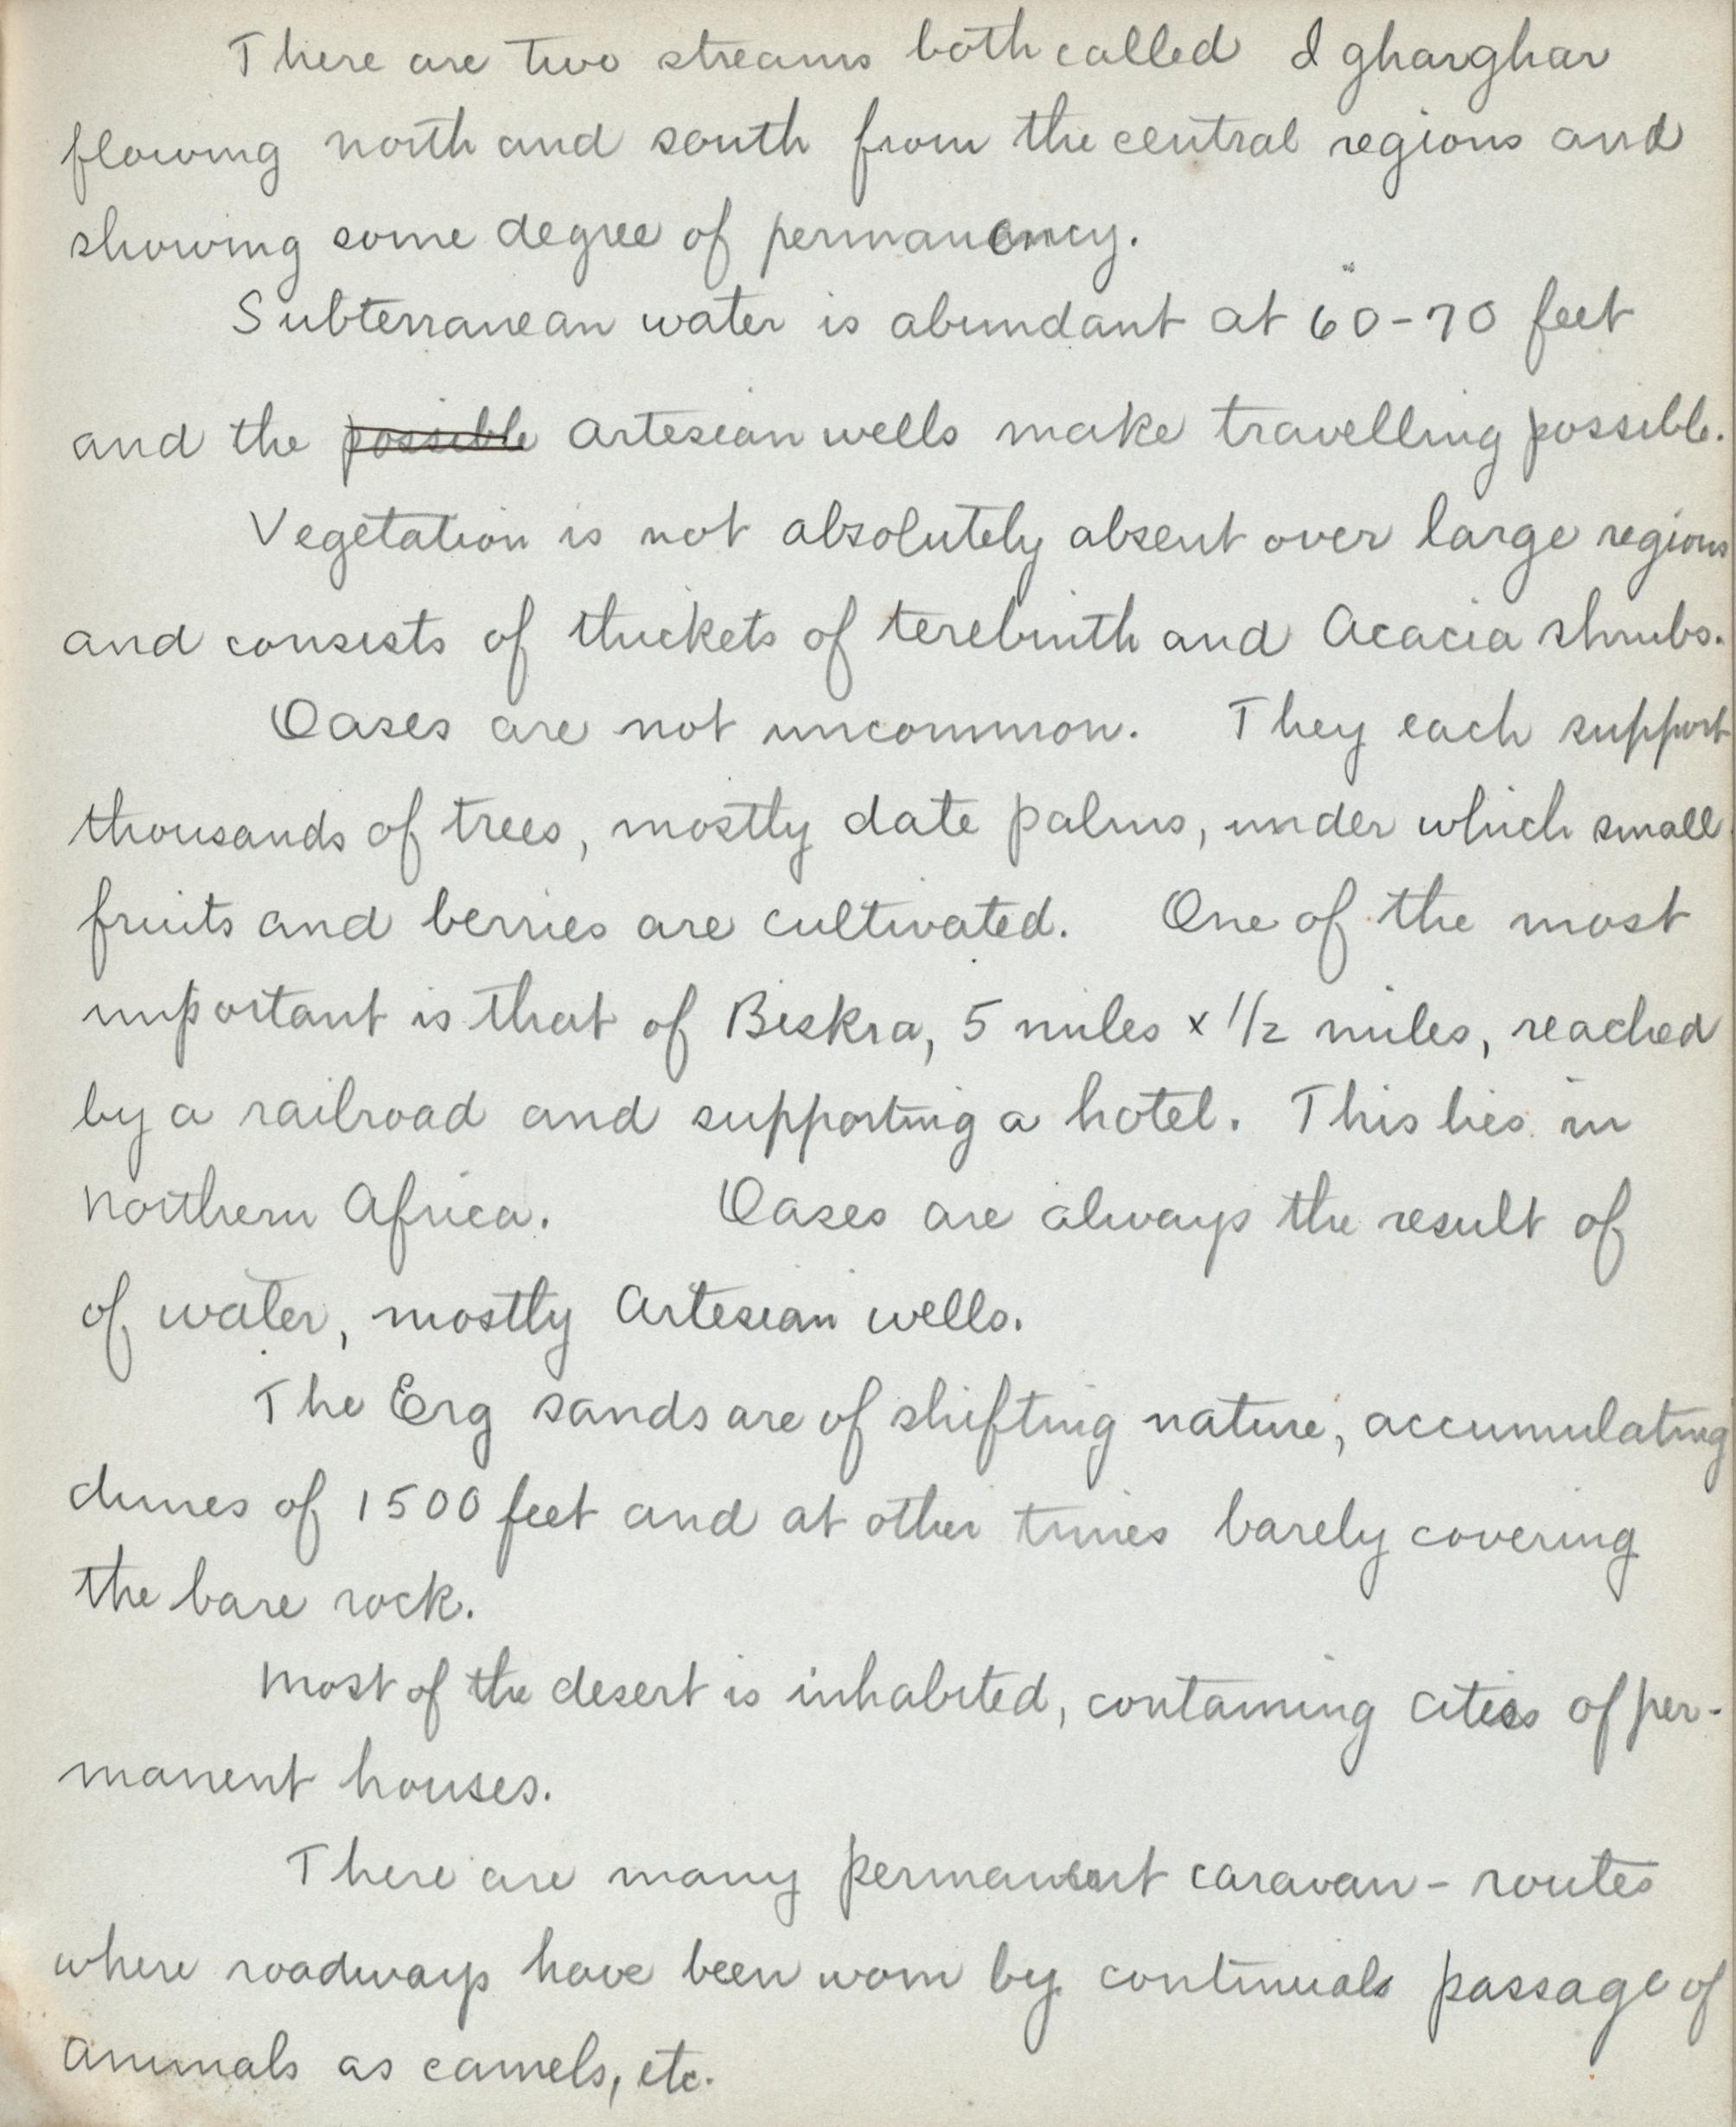 There are two streams both called Igharghar
flowing north and south from the central regions and
showing some degree of permanency.
Subterranean water is abundant at 60-70 feet
and the possible Artesian wells make travelling possible.
Vegetation is not absolutely absent over large regions
and consists of thickets of terebinth and Acacia shrubs.
Oases are not uncommon. They each support
thousands of trees, mostly date palms, under which small
fruits and berries are cultivated. One of the most
important is that of Biskra, 5 miles x 1/2 miles, reached
by a railroad and supporting a hotel. This lies in
northern Africa. Oases are always the result of
of water, mostly Artesian wells.
The Erg sands are of shifting nature, accumulating
dunes of 1500 feet and at other times barely covering
the bare rock.
Most of the desert is inhabited, containing cities of per-
manent houses.
There are many permanent caravan-routes
where roadways have been worn by continual passage of
animals as camels, etc.